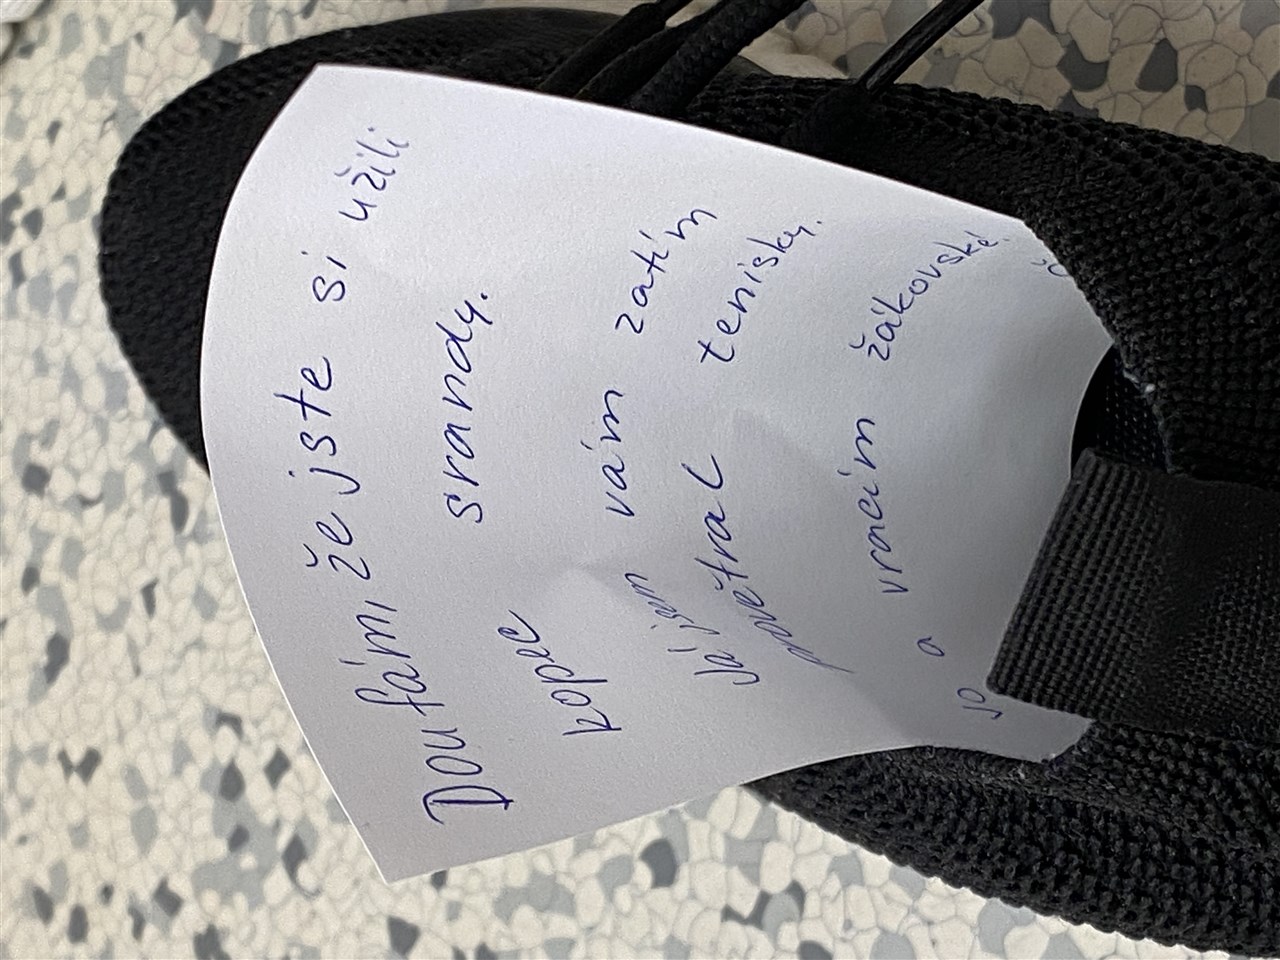 Doufám, že jste si užili
kopec srandy.
Já jsem vám zatím
provětral tenisky.
a vracím žákovské.